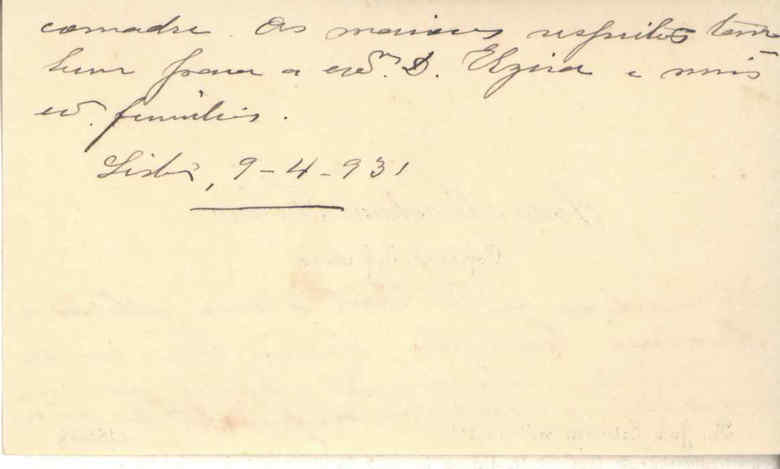 comadre. Os maiores respeitos tam
bem para a exmª. D. Elzira e mais
exª. familia.
Lisbª, 9-4-931